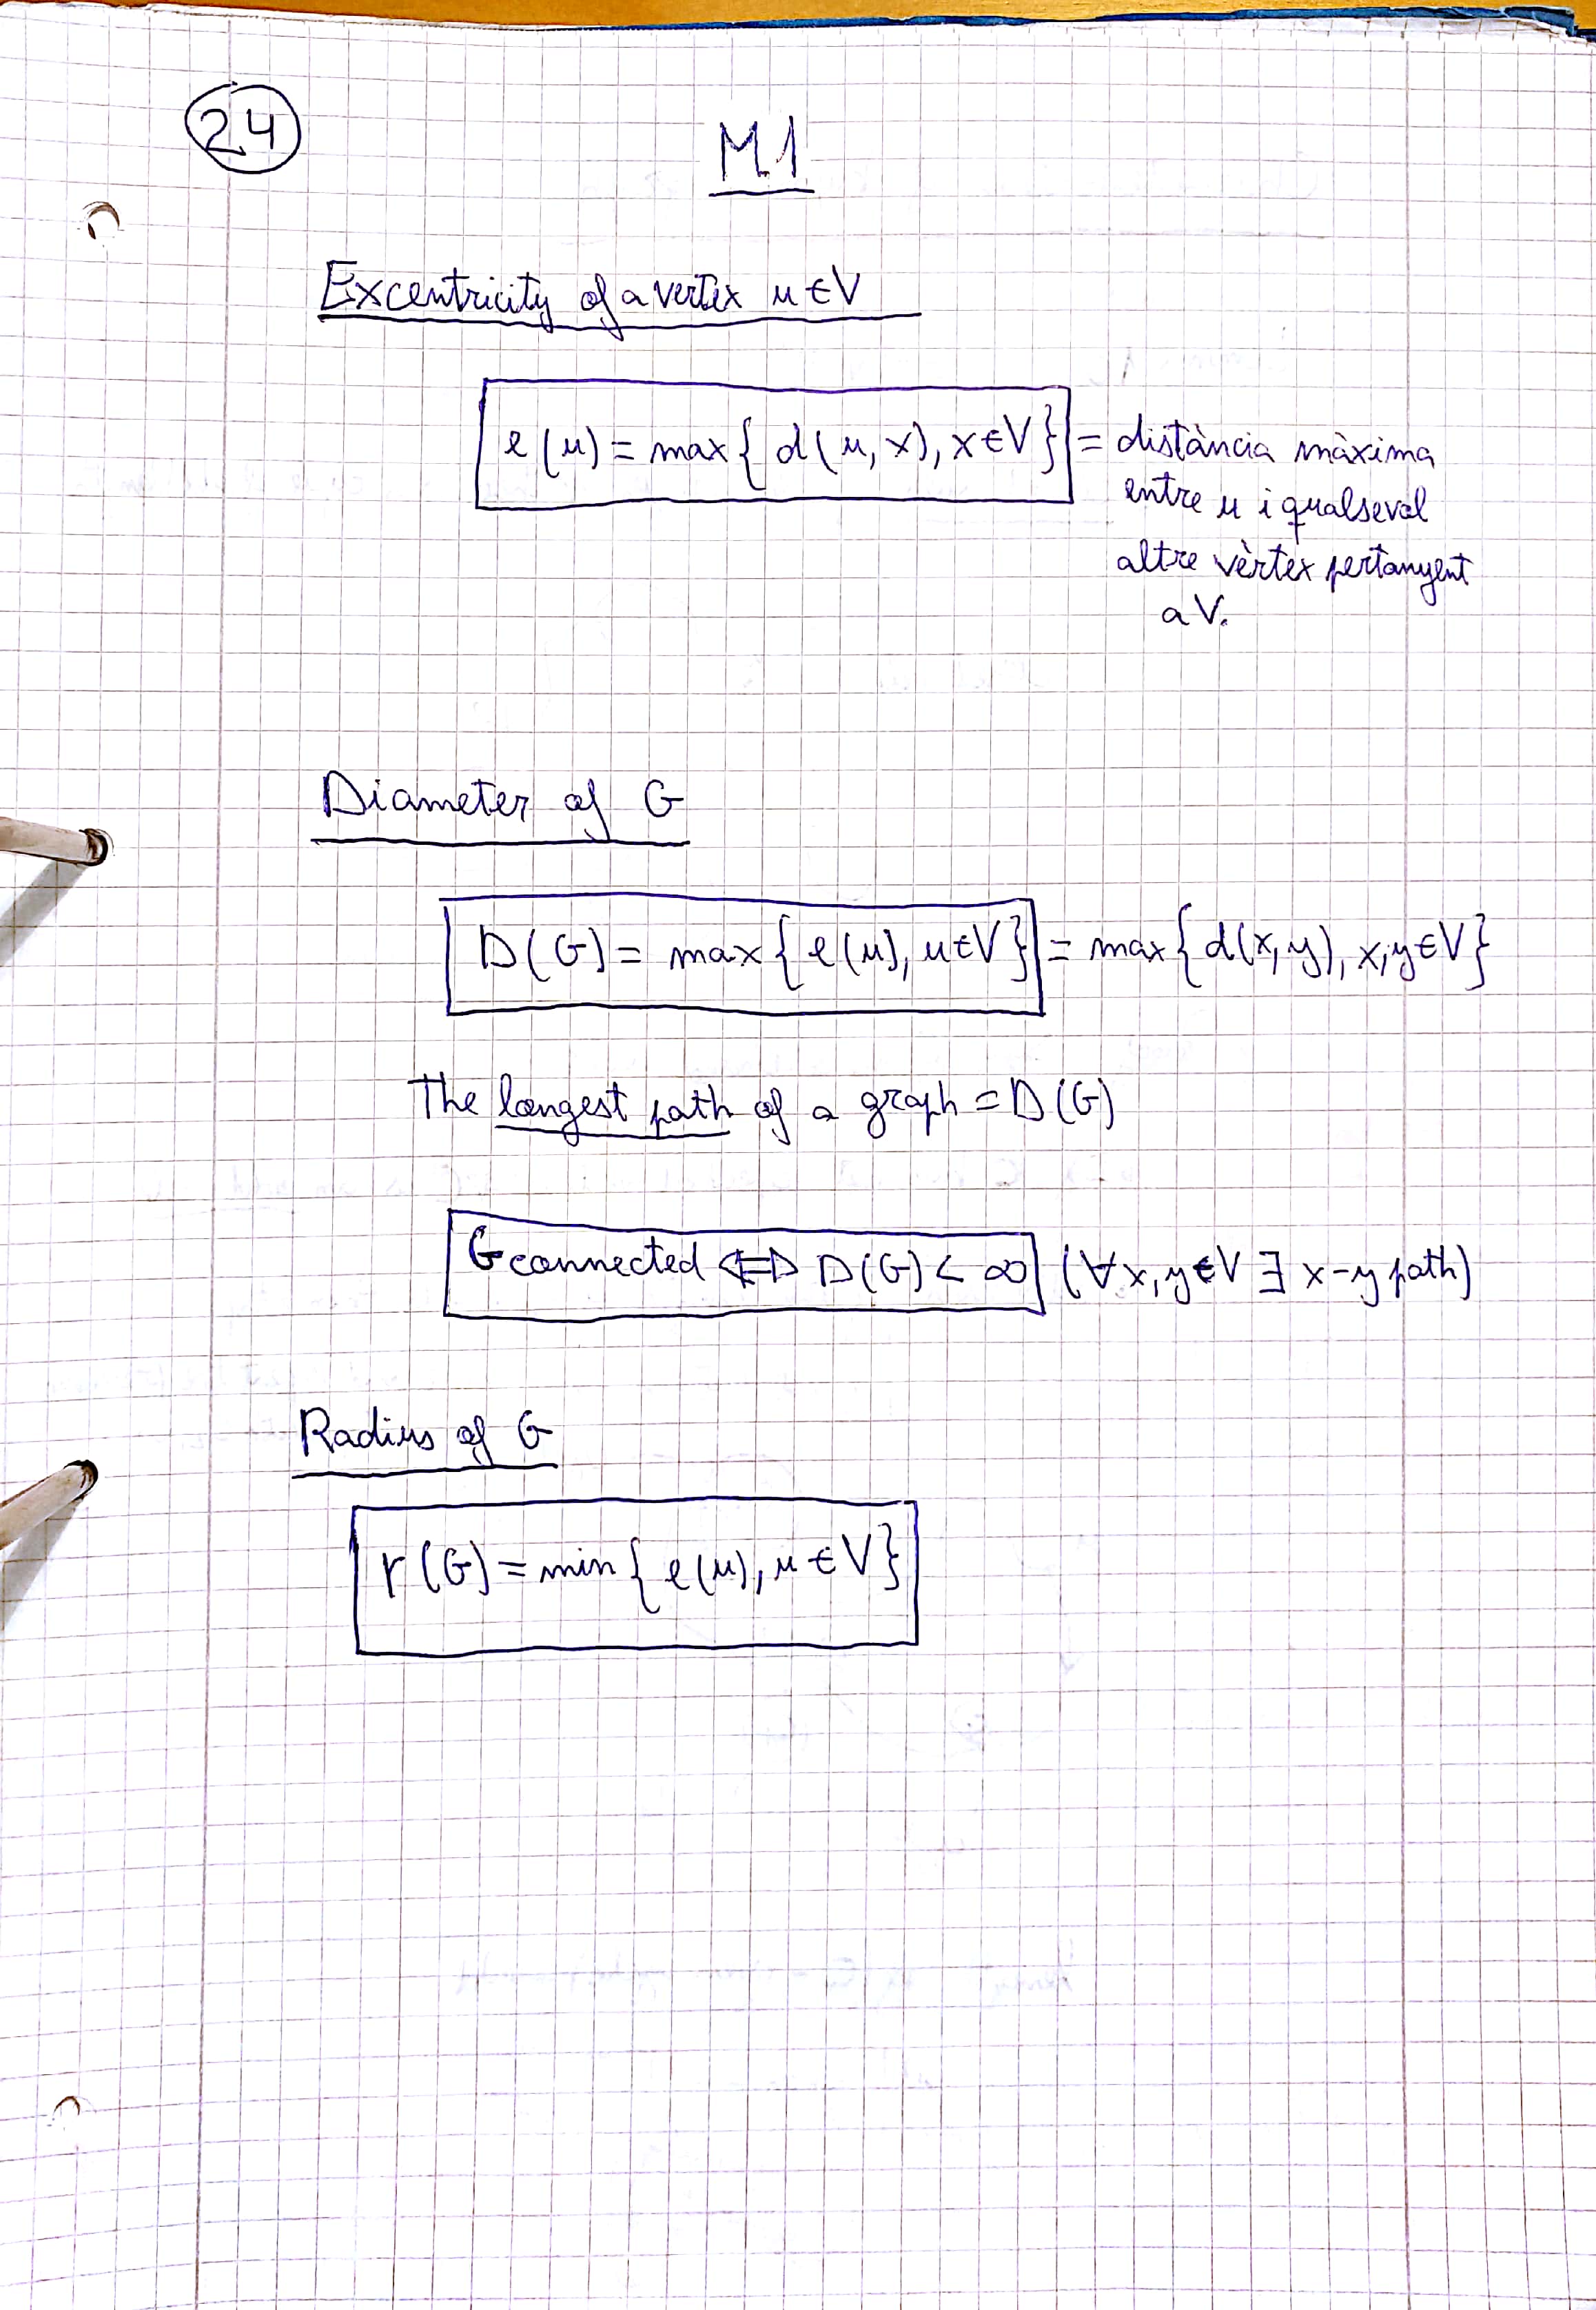 24
M.1
Excentricity of a vertex u ∈ V
e(u) = max{ d(u, x), x ∈ V } = distància màxima
entre u i qualsevol
altre vèrtex pertanyent
a V.
Diameter of G
D(G) = max{ e(u), u ∈ V } = max{ d(x, y), x, y ∈ V }
The longest path of a graph = D(G)
G connected ⇔ D(G) < ∞ (∀ x, y ∈ V ∃ x-y path)
Radius of G
r(G) = min{ e(u), u ∈ V }